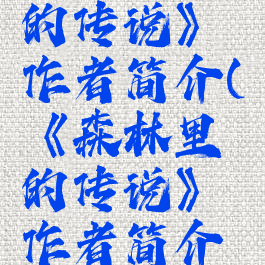 的传说》
作者简介(
《森林里
的传说》
作者简介